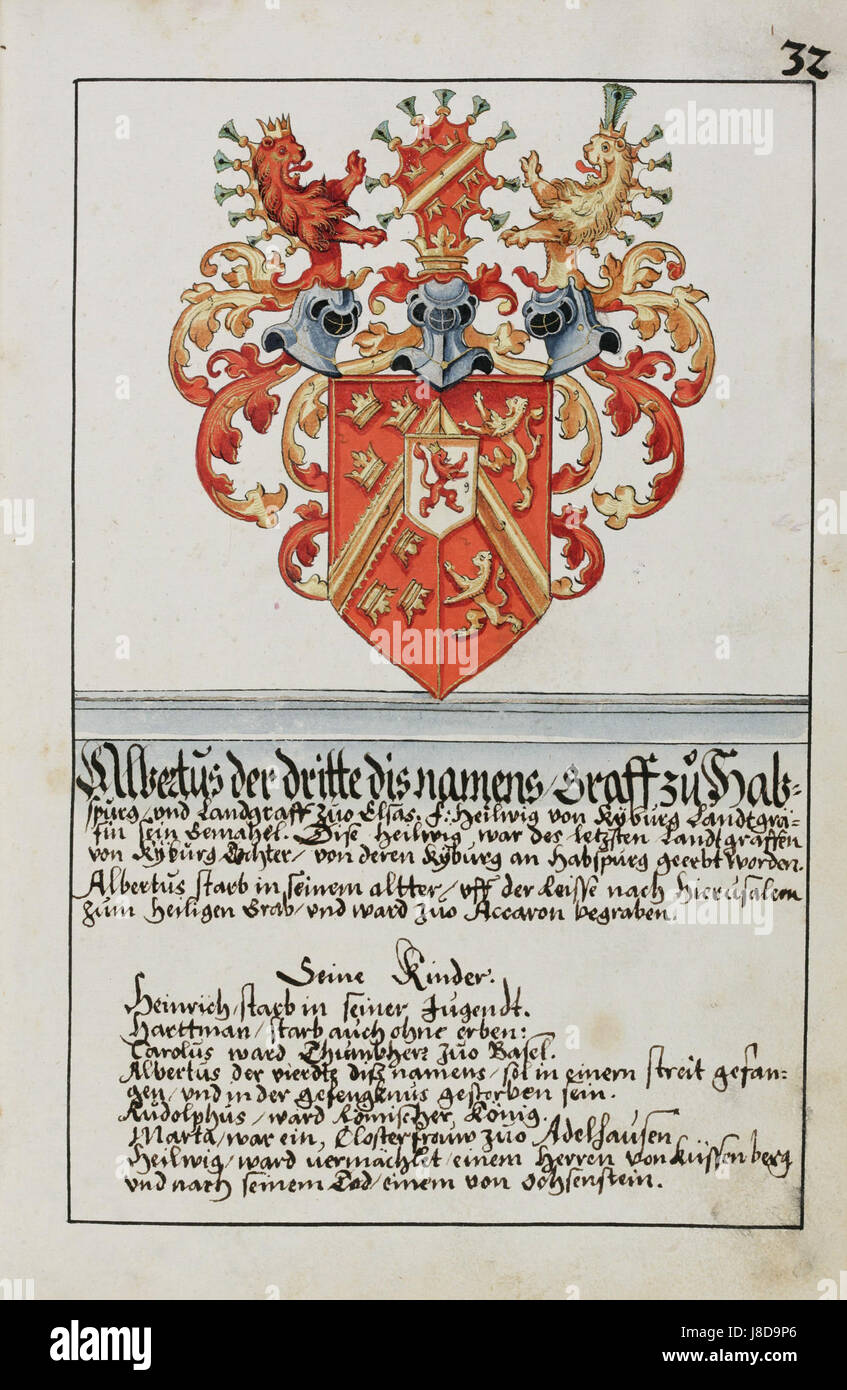 32
Albertus der dritte dis namens / Graff zů Hab=
spurg / und Landgraff zuo Elsas. F: Heilwig von Kÿburg Landtgrä=
fin sein Gemahel. Dise Heilwig war des letzsten Landtgraffen
von Kÿburg Dochter / von deren Kÿburg an Habspurg geerbt worden.
Albertus starb in seinem altter / uff der Reisse nach Hierusalem
zum Heiligen Grab / und ward zuo Accaron begraben.
Seine Kinder.
Heinrich / starb in seiner Jugendt.
Harttman / starb auch ohne erben:
Carolus ward Thumbherr zuo Basel.
Albertus der vierdte diß namens / sol in einem streit gefan=
gen / und in der gefengknus gestorben sein.
Rudolphus / ward Römischer König.
Marta / war ein Closterfrouw zuo Adelhausen
Heilwig / ward vermächlet einem Herren von Küssenberg
und nach seinem Tod / einem von Ochsenstein.
alamy
Image ID: J8D9P6
www.alamy.com